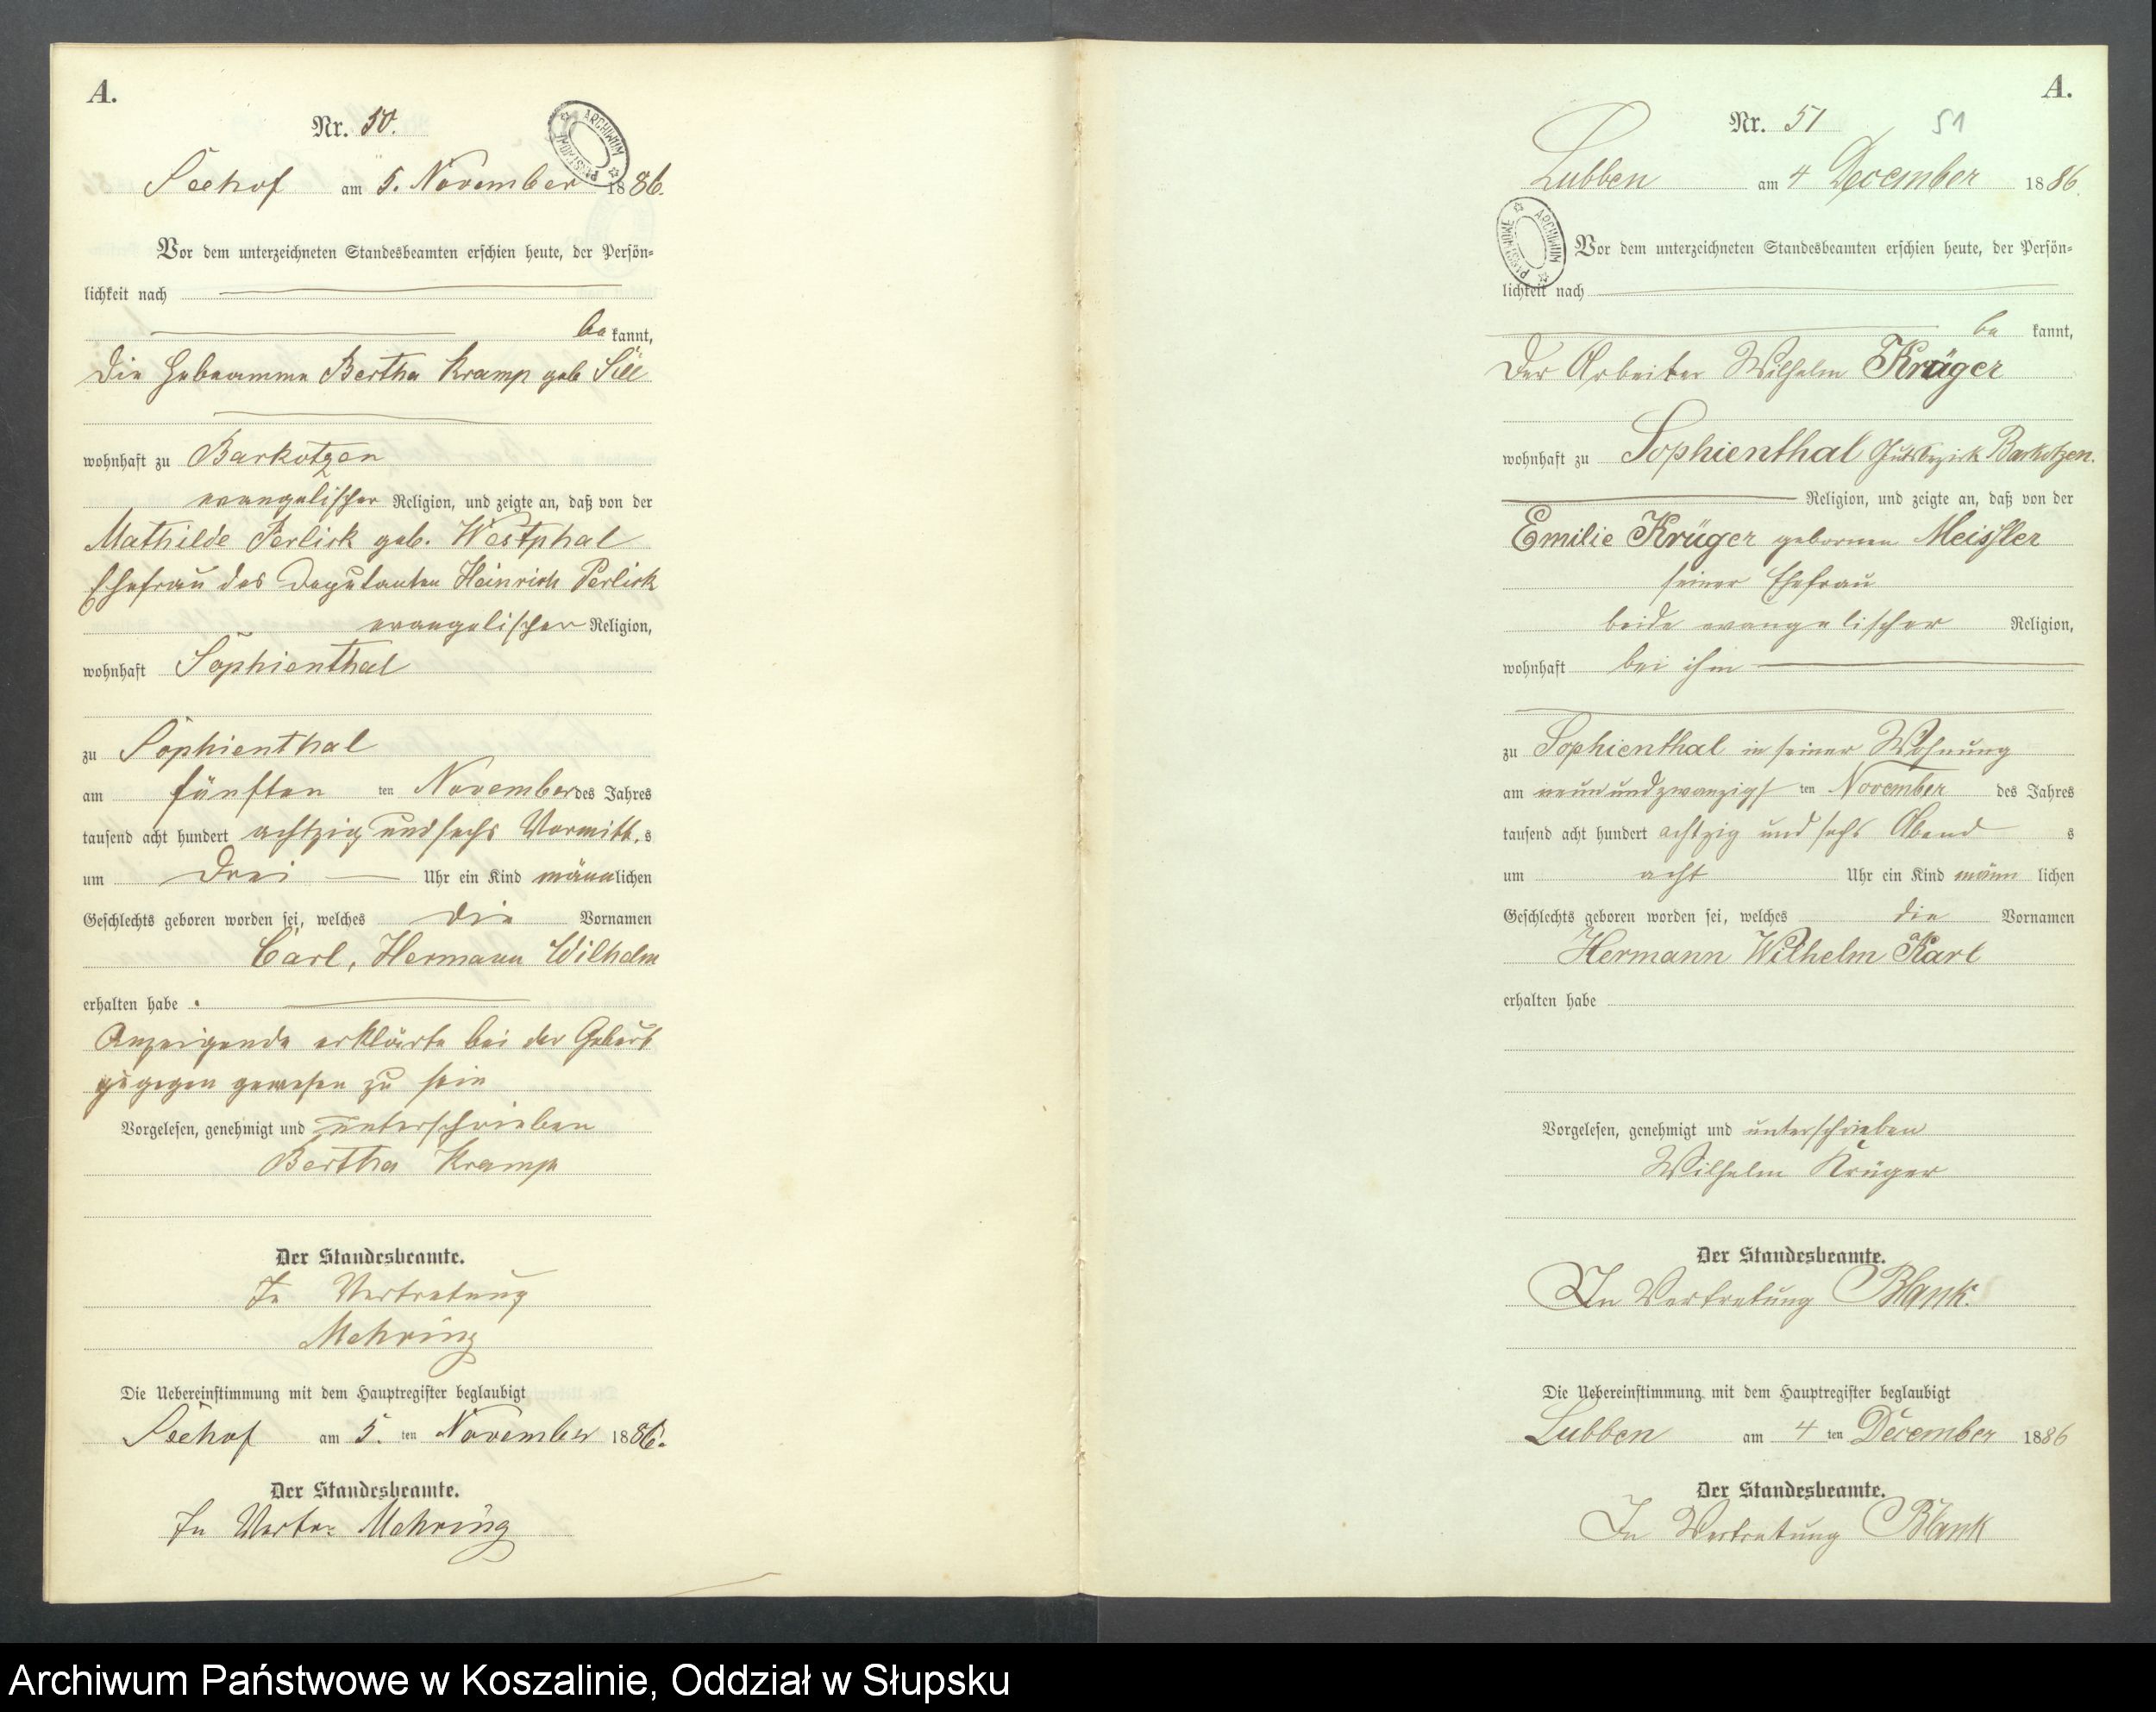 A.
Nr. 50.
ARCHIWUM PAŃSTWOWE
Seehof am 5. November 1886.
Vor dem unterzeichneten Standesbeamten erschien heute, der Persön-
lichkeit nach
be kannt,
die Hebeamme Bertha Kramp geb
wohnhaft zu Barkotzen
evangelischer Religion, und zeigte an, daß von der
Mathilde Perlick geb. Westphal
Ehefrau des Deputanten Heinrich Perlick
evangelischer Religion,
wohnhaft Sophienthal
zu Sophienthal
am fünften ten November des Jahres
tausend acht hundert achtzig und sechs Vormitt. s
um drei Uhr ein Kind männlichen
Geschlechts geboren worden sei, welches die Vornamen
Carl, Hermann Wilhelm
erhalten habe.
Anzeigende erklärte bei der Geburt
zugegen gewesen zu sein
Vorgelesen, genehmigt und unterschrieben
Bertha Kramp
Der Standesbeamte.
In Vertretung
Mehring
Die Uebereinstimmung mit dem Hauptregister beglaubigt
Seehof am 5. ten November 1886.
Der Standesbeamte.
In Vertr: Mehring
A.
Nr. 51
51
Lubben am 4 December 1886.
ARCHIWUM PAŃSTWOWE
Vor dem unterzeichneten Standesbeamten erschien heute, der Persön-
lichkeit nach
be kannt,
Der Arbeiter Wilhelm Krüger
wohnhaft zu Sophienthal Gutsbezirk Barkotzen.
Religion, und zeigte an, daß von der
Emilie Krüger gebornen Meissler
seiner Ehefrau
beide evangelischer Religion,
wohnhaft bei ihm
zu Sophienthal in seiner Wohnung
am neunundzwanzigs ten November des Jahres
tausend acht hundert achtzig und sechs Abend s
um acht Uhr ein Kind männ lichen
Geschlechts geboren worden sei, welches die Vornamen
Hermann Wilhelm Karl
erhalten habe
Vorgelesen, genehmigt und unterschrieben
Wilhelm Krüger
Der Standesbeamte.
In Vertretung Blank.
Die Uebereinstimmung mit dem Hauptregister beglaubigt
Lubben am 4 ten December 1886
Der Standesbeamte.
In Vertretung Blank
Archiwum Państwowe w Koszalinie, Oddział w Słupsku